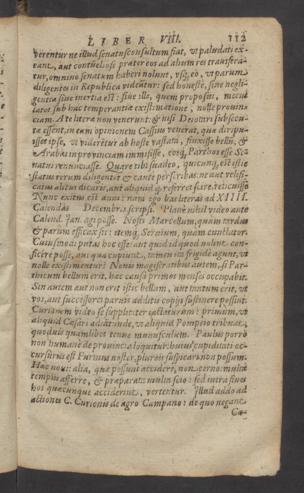 LIBER VIII. 112
verentur ne illud senatusconsultum fiat, ut paludati ex-
eant, aut contumeliose praeter eos ad alium res transfera-
tur, omnino senatum haberi nolunt, usque eo, ut parum
diligentes in Republica videantur: sed honeste, sine negli-
gentia sive inertia est: sive ille, quem proposui, metus
latet sub hac temperantiae existimatione, nolle provin-
ciam. A te literae non venerunt: & nisi Deiotari subsecu-
tae essent, in eam opinionem Cassius veniebat, quae diripu-
isset ipse, ut viderentur ab hoste vastata, finxisse bellum, &
Arabas in provinciam immisisse, eosque Parthos esse Se-
natui renuntiasse. Quare tibi suadeo, quicunque est istic
status rerum diligenter & caute perscribas: ne aut velifi-
catus alicui dicaris, aut aliquid quod referret scire, reticuisse.
Nunc exitus est anni: nam ego has literas ad XIIII.
Calendas Decembris scripsi. Plane nihil video ante
Calend. Jan. agi posse. Nosti Marcellum, quam tardus
& parum efficax sit: itemque Servium, quam cunctator.
Cuiusmodi putas hos esse: aut quid id quod nolunt con-
ficere posse, qui quae cupiunt, tamen ita frigide agunt, ut
nolle existimentur? Novis magistratibus autem, si Par-
thicum bellum erit, haec causa primos menses occupabit.
Sin autem aut non erit istic bellum, aut tantum erit, ut
vos, aut successores parvis additis copiis sustinere possint:
Curionem video se dupliciter iactaturum: primum, ut
aliquid Caesari adiiciat: inde, ut aliquid Pompeio tribuat,
quodvis quamlibet tenue munusculum. Paulus porro
non humane de provincia loquitur: huius cupiditati oc-
cursurus est Furnius noster, plureis suspicari non possum.
Haec novi: alia, quae possunt accidere, non cerno: multa
tempus afferre, & praeparata multa scio: sed intra fines
hos quaecunque acciderint, vertentur. Illud addo ad
actiones C. Curionis de agro Campano: de quo negant
Cae-